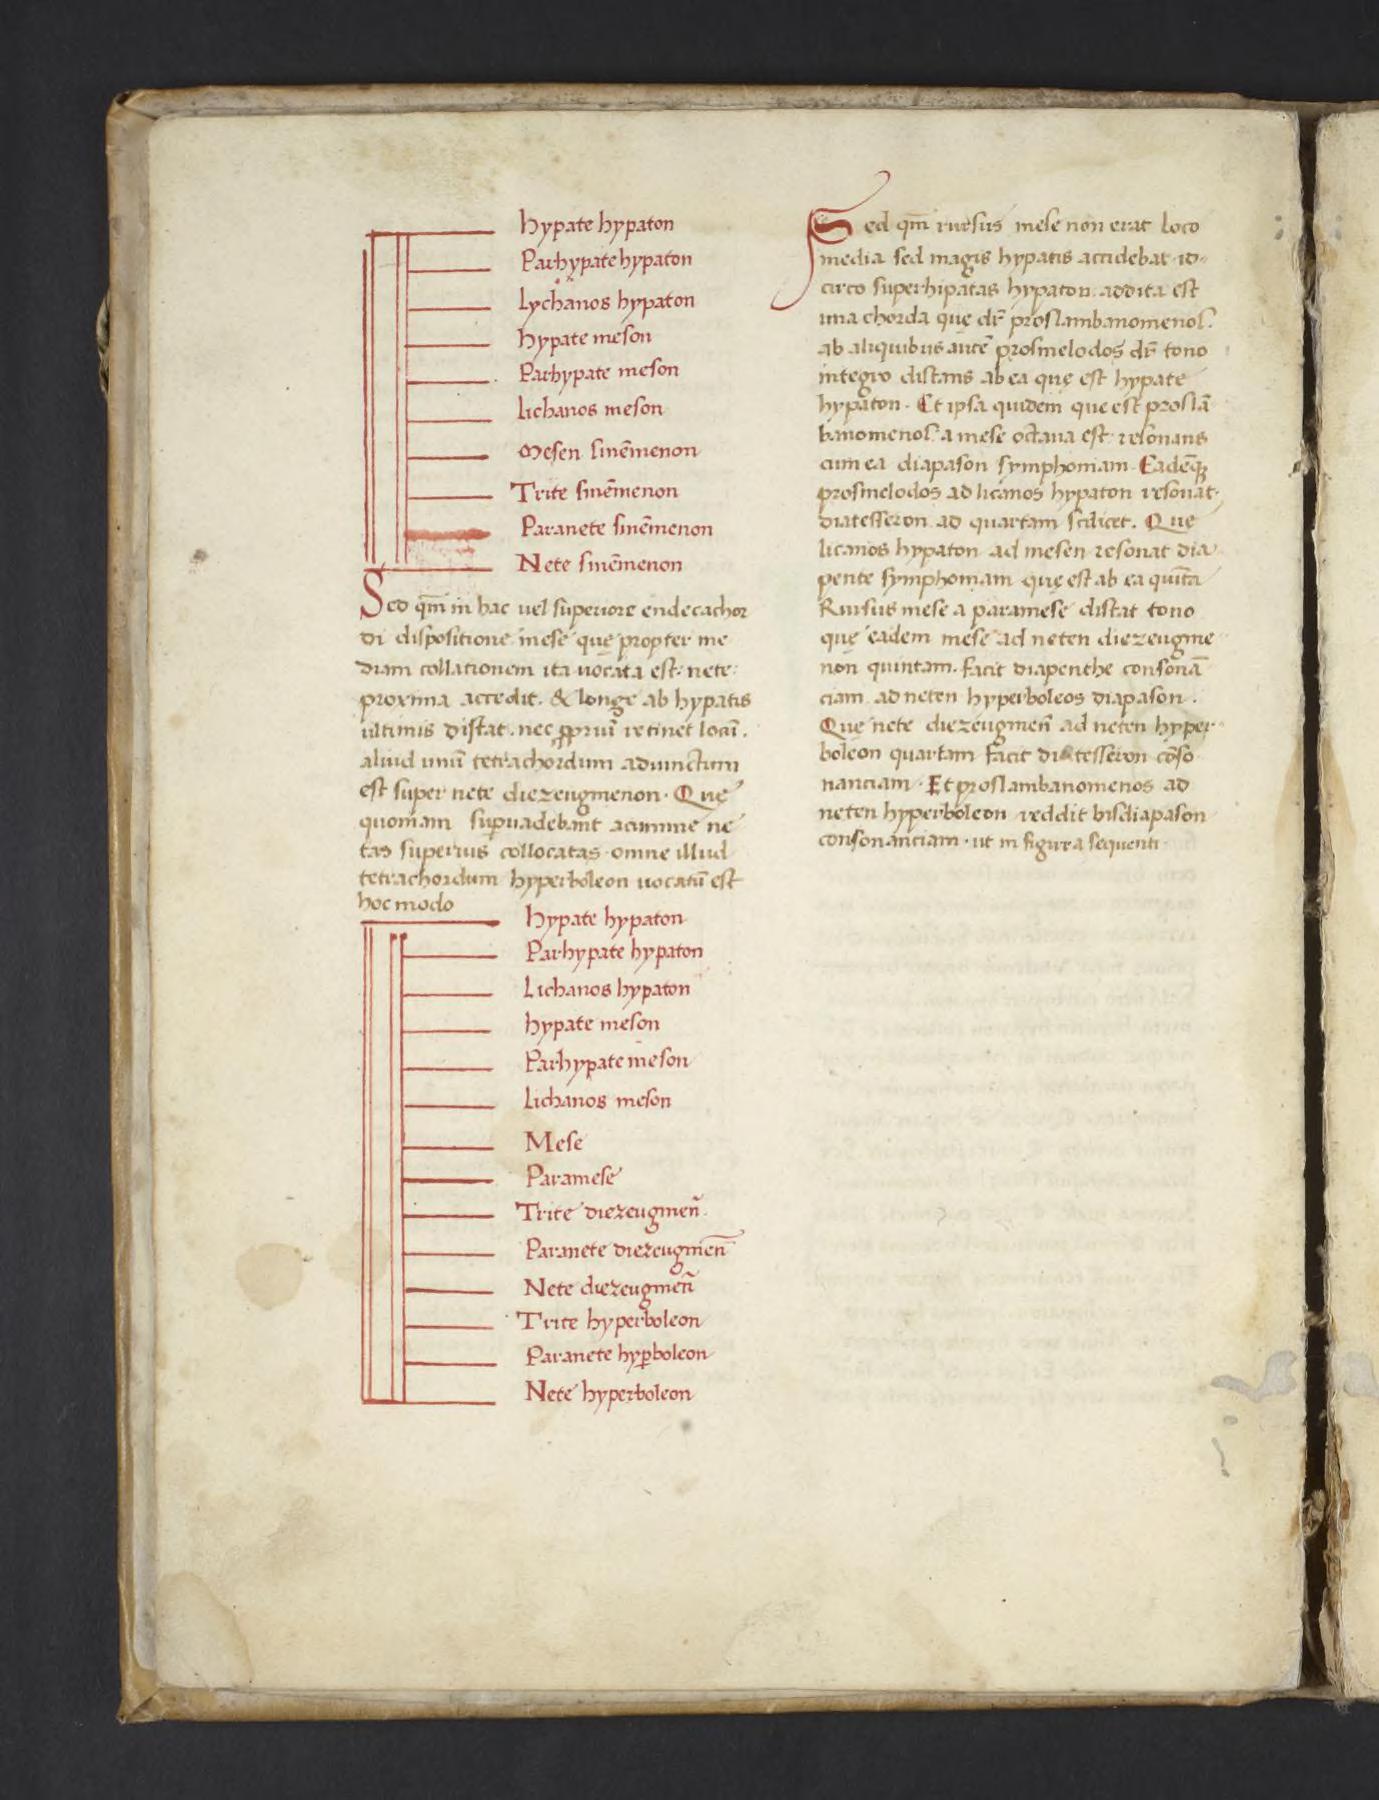 hypate hypaton
Parhypate hypaton
Lychanos hypaton
hypate meson
Parhypate meson
lichanos meson
Mesen sinēmenon
Trite sinēmenon
Paranete sinēmenon
Nete sinēmenon
Sed qm̄ in hac uel superiore endecachor
di dispositione mese que propter me
diam collationem ita uocata est nete
proxima accedit. & longe ab hypatis
ultimis distat. nec ꝓpriū retinet locū.
aliud unū tetrachordum adiunctum
est super nete diezeugmenon. Quę
quoniam supuadebant acumine ne
tas superius collocatas omne illud
tetrachordum hyperboleon uocatū est
hoc modo
hypate hypaton
Parhypate hypaton
Lichanos hypaton
hypate meson
Parhypate meson
lichanos meson
Mese
Paramese
Trite diezeugmen̄
Paranete diezeugmen̄
Nete diezeugmen̄
Trite hyperboleon
Paranete hyꝑboleon
Nete hyperboleon
Sed qm̄ rursus mese non erat loco
media sed magis hypatis accidebat id
circo superhipatas hypaton addita est
una chorda quę dr̄ proslambanomenos.
ab aliquibus autē prosmelodos dr̄ tono
integro distans ab ea quę est hypate
hypaton. Et ipsa quidem que est proslā
banomenos. a mese octaua est resonans
cum ea diapason symphoniam. Eadēqꝫ
prosmelodos ad licanos hypaton resonat
diatesseron ad quartam scilicet. Quę
licanos hypaton ad mesen resonat dia
pente symphoniam quę est ab ea quīta
Rursus mese a paramese distat tono
quę eadem mese ad neten diezeugme
non quintam. facit diapenthe consonā
ciam ad neten hyperboleos diapason.
Que nete diezeugmen̄ ad neten hyper
boleon quartam facit diatesseron cōso
nanciam. Et proslambanomenos ad
neten hyperboleon reddit bisdiapason
consonanciam. ut in figura sequenti